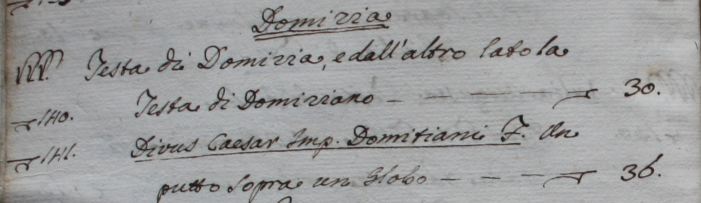 Domizia
Testa di Domizia, e dall'altro lato la
140. Testa di Domiziano — — — 30.
141. Divus Caesar Imp. Domitiani F. Un
putto sopra un Globo — — — 36.